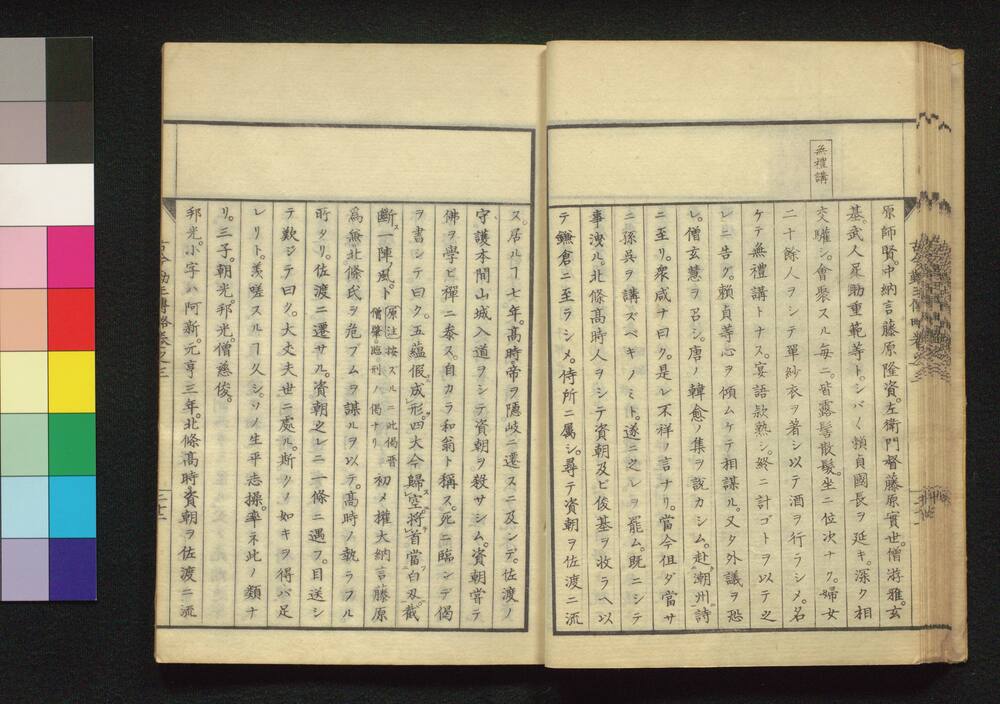 無禮講
原師賢。中納言藤原隆資。左衛門督藤原實世。僧游雅。玄
基。武人足助重範等ト。シバ〱賴貞國長ヲ延キ。深ク相
交驩シ。會聚スル每ニ。皆露髻散髮。坐ニ位次ナク。婦女
二十餘人ヲシテ單紗衣ヲ著シ以テ酒ヲ行ラシメ。名
ケテ無禮講トナス。宴語款熟シ。終ニ計ゴトヲ以テ之
レニ告グ。賴貞等心ヲ傾ムケテ相謀ル。又タ外議ヲ恐
レ。僧玄慧ヲ召シ。唐ノ韓愈ノ集ヲ說カシム。赴潮州詩
ニ至リ。衆咸ナ曰ク。是レ不祥ノ言ナリ。當今但ダ當サ
ニ孫吳ヲ講ズベキノミト。遂ニ之レヲ罷ム。既ニシテ
事洩ル。北條高時人ヲシテ資朝及ビ俊基ヲ收ラヘ以
テ鎌倉ニ至ラシメ。侍所ニ屬シ。尋テ資朝ヲ佐渡ニ流
ス。居ルヿ七年。高時帝ヲ隱岐ニ遷スニ及ンデ。佐渡ノ
守護本間山城入道ヲシテ資朝ヲ殺サシム。資朝嘗テ
佛ヲ學ビ禪ニ參ス。自カラ和翁ト稱ス。死ニ臨ンデ偈
ヲ書シテ曰ク。五蘊假成形。四大今歸空。將首當白刄。截
斷一陣風。ト原注按スルニ此偈晋僧肇臨刑ノ偈ナリ初メ權大納言藤原
爲無北條氏ヲ危ブムヲ謀ルヲ以テ。高時ノ執ラフル
所タリ。佐渡ニ遷サル。資朝之レニ一條ニ遇フ。目送シ
テ歎ジテ曰ク。大丈夫世ニ處ル。斯クノ如キヲ得バ足
レリト。羨嗟スルヿ久シ。ソノ生平志操。率ネ此ノ類ナ
リ。三子。朝光。邦光。僧慈俊。
邦光。小字ハ阿新。元亨三年。北條高時資朝ヲ佐渡ニ流